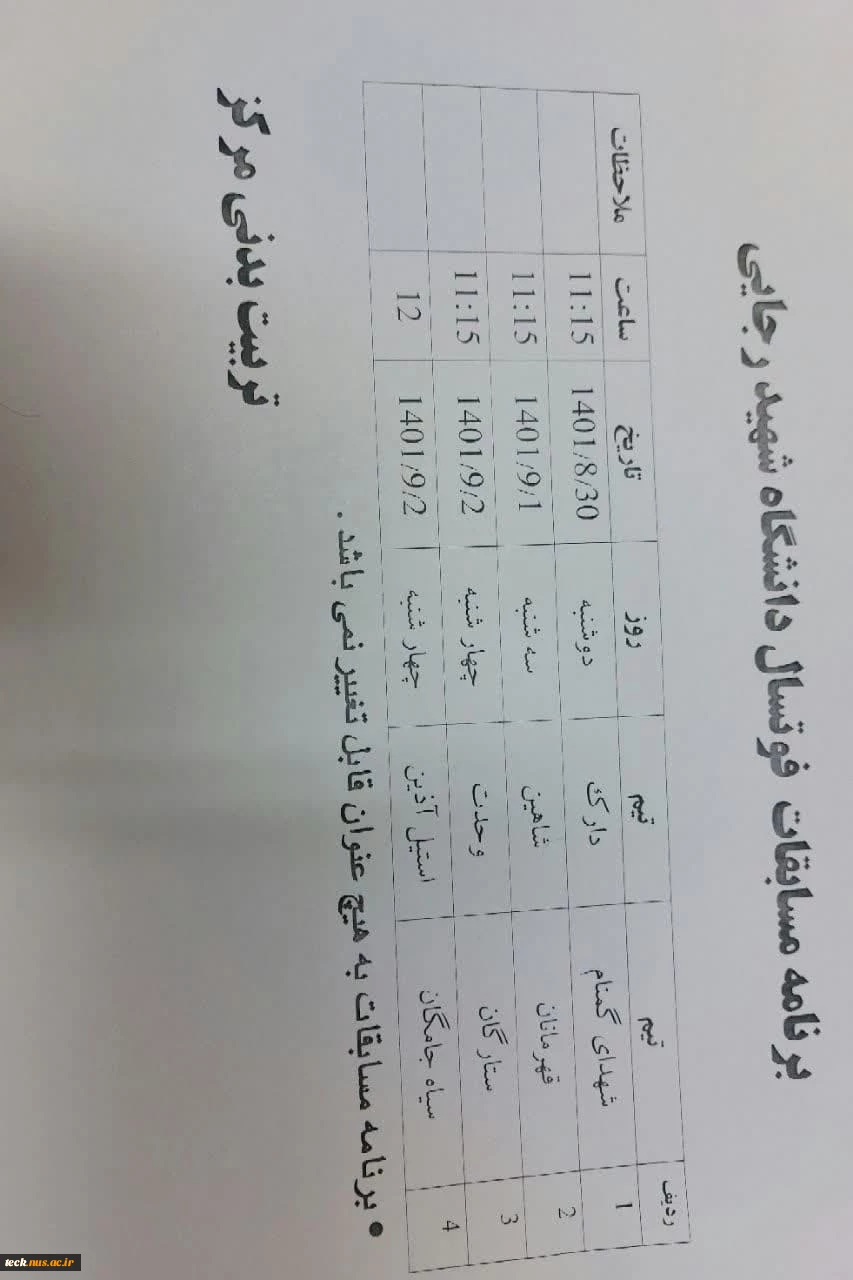 برنامه مسابقات فوتسال دانشگاه شهید رجایی
ردیف تیم تیم روز تاریخ ساعت ملاحظات
1 شهدای گمنام دارک دوشنبه 1401/8/30 11:15
2 قهرمانان شاهین سه شنبه 1401/9/1 11:15
3 ستارگان وحدت چهار شنبه 1401/9/2 11:15
4 سیاه جامگان استیل آذین چهار شنبه 1401/9/2 12
• برنامه مسابقات به هیچ عنوان قابل تغییر نمی باشد .
تربیت بدنی مرکز
teck.nus.ac.ir